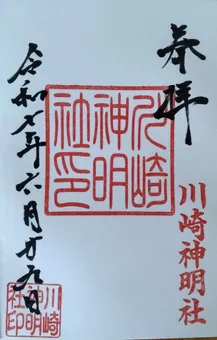 奉拝
川崎神明社
川崎神明社印
令和七年六月廿九日
川崎神明社印